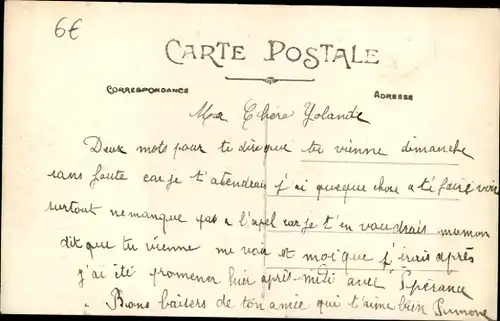 6€
CARTE POSTALE
CORRESPONDANCE
ADRESSE
Ma Chère Yolande
Deux mots pour te dire que tu vienne dimanche
sans faute car je t'atendrais j'ai quelque chose a te faire voir
surtout ne manque pas a l'apel car je t'en voudrais maman
dit que tu vienne me voir et moi que j'irais après
j'ai été promener hier après-midi avec Espérance
Bons baisers de ton amie qui t'aime bien Simone